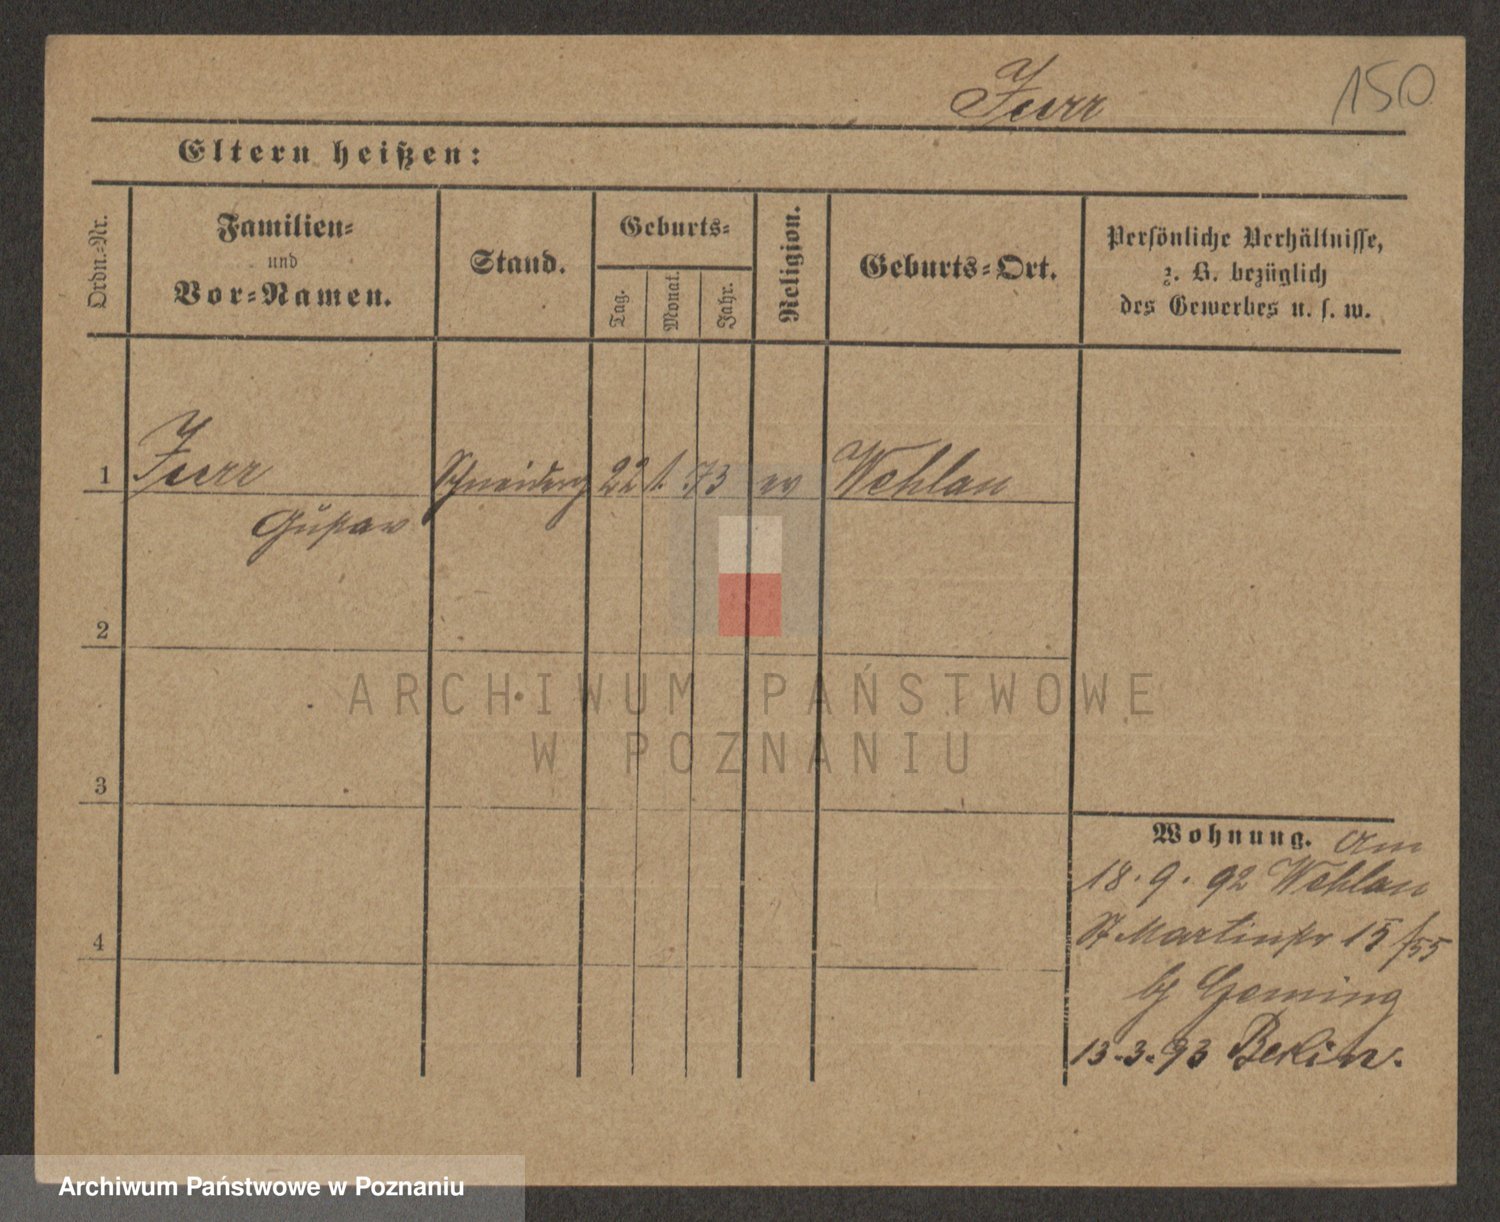 Furr 150
Eltern heißen:
Ordn.-Nr.
Familien-
und
Vor-Namen.
Stand.
Geburts-
Tag.
Monat.
Jahr.
Religion.
Geburts-Ort.
Persönliche Verhältnisse,
z. B. bezüglich
des Gewerbes u. s. w.
1 Furr Schneiderg 22 1. 73 ev Wehlau
Gustav
2
ARCHIWUM PAŃSTWOWE
W POZNANIU
3
Wohnung. Am
18. 9. 92 Wehlau
St Martinstr 15/55
13.3.93 Berlin.
4
Archiwum Państwowe w Poznaniu